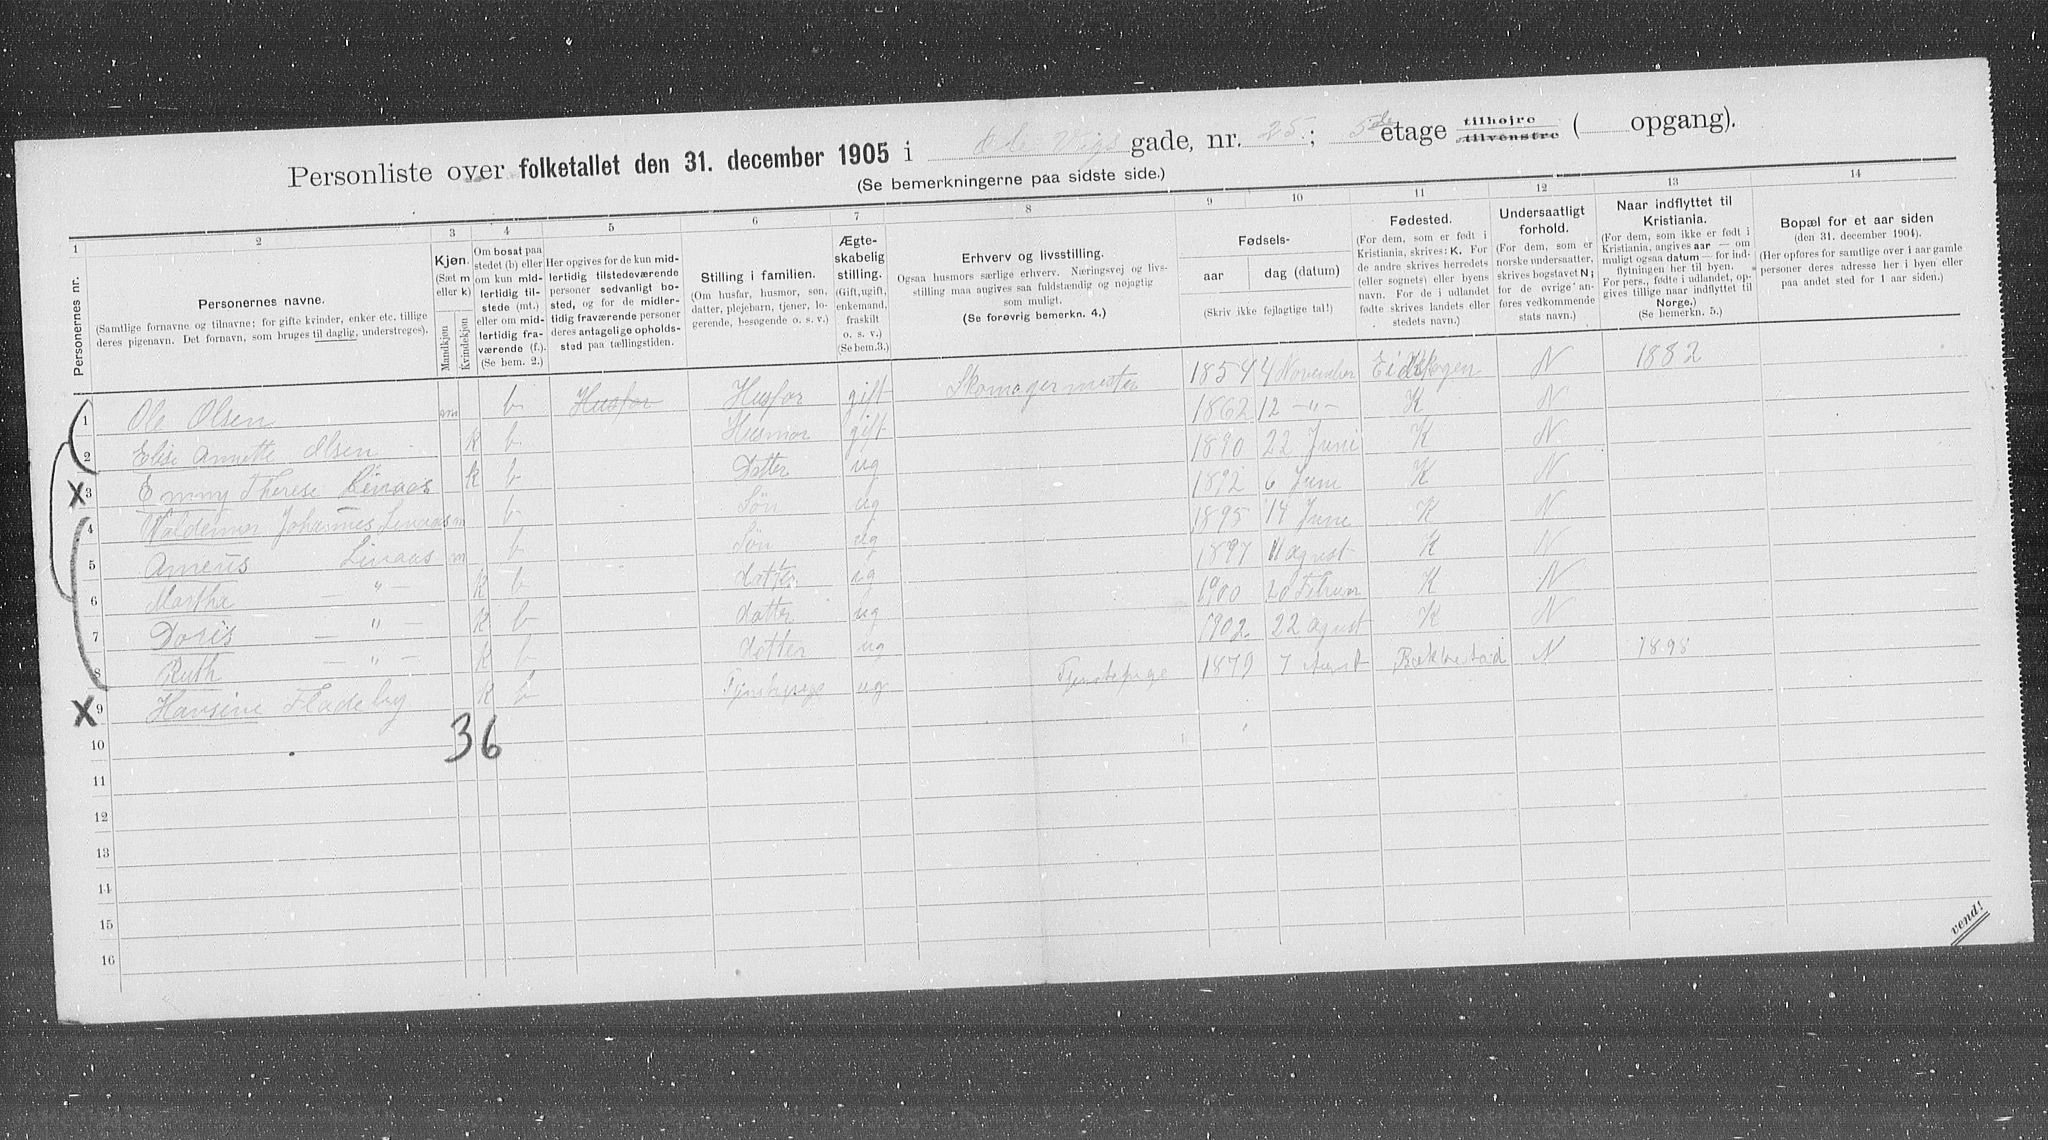 Personliste over folketallet den 31. december 1905 i Ole Vigs gade, nr. 25.; 5de etage tilhøjre tilvenstre ( opgang).
(Se bemerkningerne paa sidste side.)
1 2 3 4 5 6 7 8 9 10 11 12 13 14
Personernes nr.
Personernes navne.
(Samtlige fornavne og tilnavne; for gifte kvinder, enker etc, tillige deres pigenavn. Det fornavn, som bruges til daglig, understreges).
Kjøn.
(Sæt m eller k)
Mandkjøn
Kvindekjøn
Om bosat paa stedet (b) eller om kun midlertidig tilstede (mt.) eller om midlertidig fraværende (f.).
(Se bem. 2.)
Her opgives for de kun midlertidig tilstedeværende personer sedvanligt bosted, og for de midlertidig fraværende personer deres antagelige opholdssted paa tællingstiden.
Stilling i familien.
(Om husfar, husmor, søn, datter, plejebarn, tjener, logerende, besøgende o. s. v.)
Ægteskabelig stilling.
(Gift, ugift, enkemand, fraskilt o. s. v.)
(Se bem.3.)
Erhverv og livsstilling.
Ogsaa husmors særlige erhverv. Næringsvej og livsstilling maa angives saa fuldstændig og nøjagtig som muligt.
(Se forøvrig bemerkn. 4.)
Fødsels-
aar dag (datum)
(Skriv ikke fejlagtige tal!)
Fødested.
(For dem, som er født i Kristiania, skrives: K. For de andre skrives herredets (eller sognets) eller byens navn. For de i udlandet fødte skrives landets eller stedets navn.)
Undersaatligt forhold.
(For dem, som er norske undersaatter, skrives bogstavet N; for de øvrige anføres vedkommende stats navn.)
Naar indflyttet til Kristiania.
(For dem, som ikke er født i Kristiania, angives aar — om muligt ogsaa datum — for indflytningen her til byen. For pers., fødte i udlandet, opgives tillige naar indflyttet til Norge.)
(Se bemerkn. 5.)
Bopæl for et aar siden
(den 31. december 1904).
(Her opføres for samtlige over 1 aar gamle personer deres adresse her i byen eller paa andet sted for 1 aar siden.)
1 Ole Olsen m b Husfar Husfar gift Skomagermester 1854 4 November Eidskogen N 1882
2 Elise Annette Olsen k b Husmor gift 1862 12 -"- K N
X 3 Emmy Therese Linaas k b Datter ug 1890 22 Juni K N
4 Valdemar Johannes Linaas m b Søn ug 1892 6 Juni K N
5 Linaas m b Søn ug 1895 14 June K N
6 Martha -"- k b datter ug 1897 11 Agust K N
7 Doris -"- k b datter ug 1900 20 K N
8 Ruth -"- k b datter ug 1902 22 Agust K N
X 9 Hansine Fladeby k b ug Tjenstepige 1879 7 N 1898
36
10
11
12
13
14
15
16
vend!